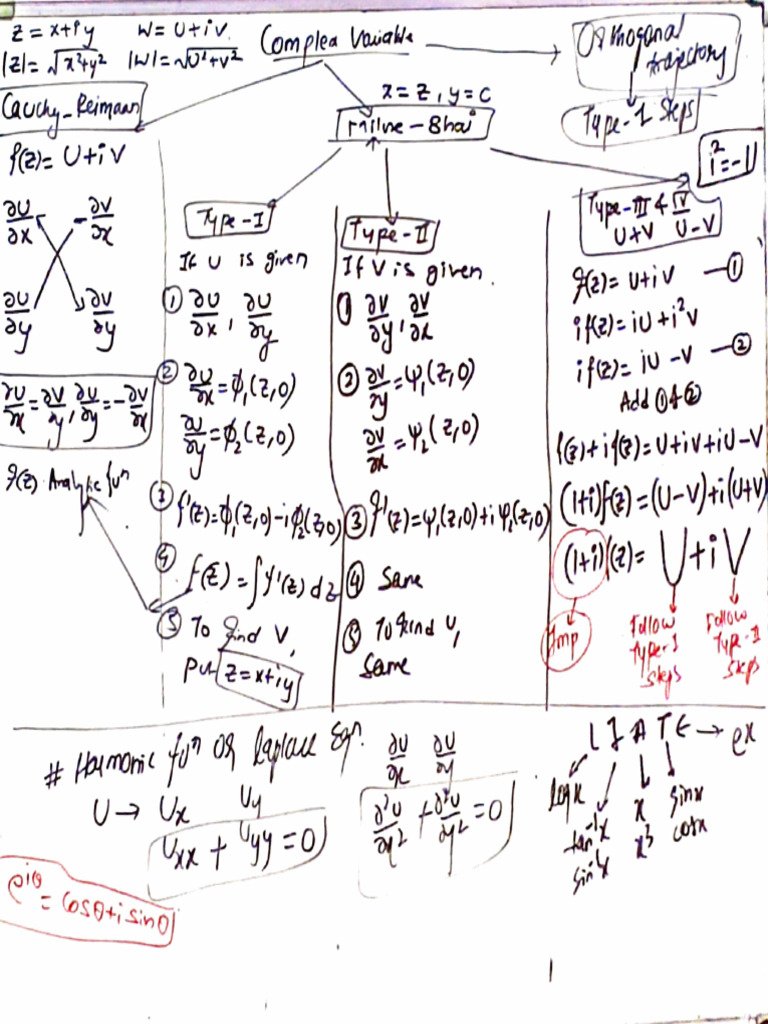 z = x+iy    W = U+iV.
|z| = √x²+y²    |W| = √U²+V²
Complex Variable
Orthogonal trajectory
Type-1 Steps
i² = -1
Cauchy-Reimann
f(z) = U+iV
∂U/∂x    -∂V/∂x
∂U/∂y    ∂V/∂y
∂U/∂x = ∂V/∂y, ∂U/∂y = -∂V/∂x
f(z) Analytic fuⁿ
x = z, y = 0
Milne-
Type-I
If U is given
① ∂U/∂x, ∂U/∂y
② ∂U/∂x = ϕ₁(z,0)
∂U/∂y = ϕ₂(z,0)
③ f'(z) = ϕ₁(z,0) - iϕ₂(z,0)
④ f(z) = ∫f'(z) dz
⑤ To find V,
Put z = x+iy
Type-II
If V is given.
① ∂V/∂y, ∂V/∂x
② ∂V/∂y = ψ₁(z,0)
∂V/∂x = ψ₂(z,0)
③ f'(z) = ψ₁(z,0) + iψ₂(z,0)
④ Same
⑤ To find U,
Same
Type-III & IV
U+V  U-V
f(z) = U+iV —①
if(z) = iU + i²V
if(z) = iU - V —②
Add ① & ②
f(z) + if(z) = U+iV+iU-V
(1+i)f(z) = (U-V) + i(U+V)
(1+i)f(z) = U + iV
Imp
Follow Type-I Steps
Follow Type-II Steps
# Harmonic fuⁿ or Laplace Eqn.
U → Ux    Uy
Uxx + Uyy = 0
∂U/∂x  ∂U/∂y
∂²U/∂x² + ∂²U/∂y² = 0
L I A T E → eˣ
logx
tan⁻¹x
sin⁻¹x
x
x³
sinx
cosx
e^iθ = cosθ + i sinθ